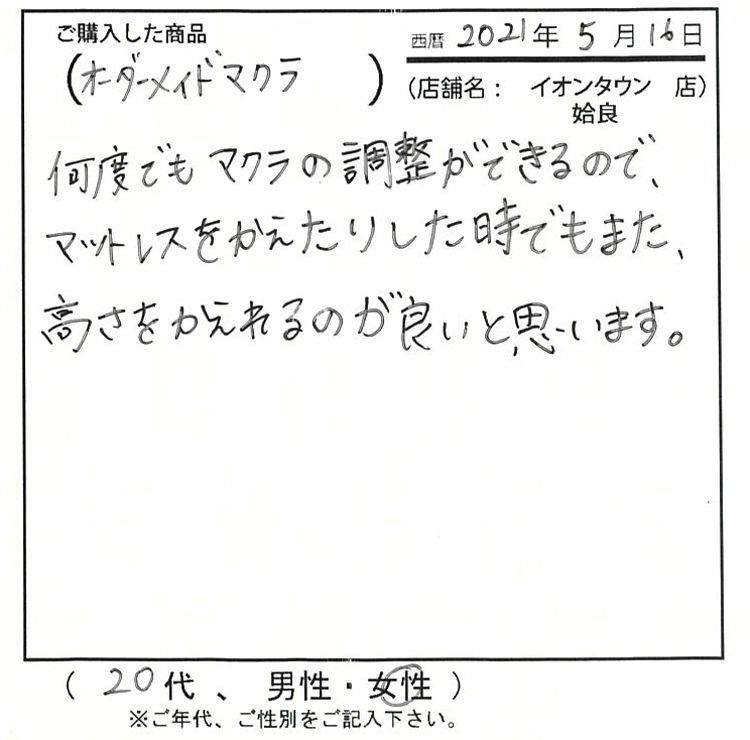 ご購入した商品
西暦 2021年 5月16日
(オーダーメイドマクラ)
(店舗名： イオンタウン 店)
姶良
何度でもマクラの調整ができるので、
マットレスをかえたりした時でもまた、
高さをかえれるのが良いと思います。
( 20代 、 男性・女性 )
※ご年代、ご性別をご記入下さい。